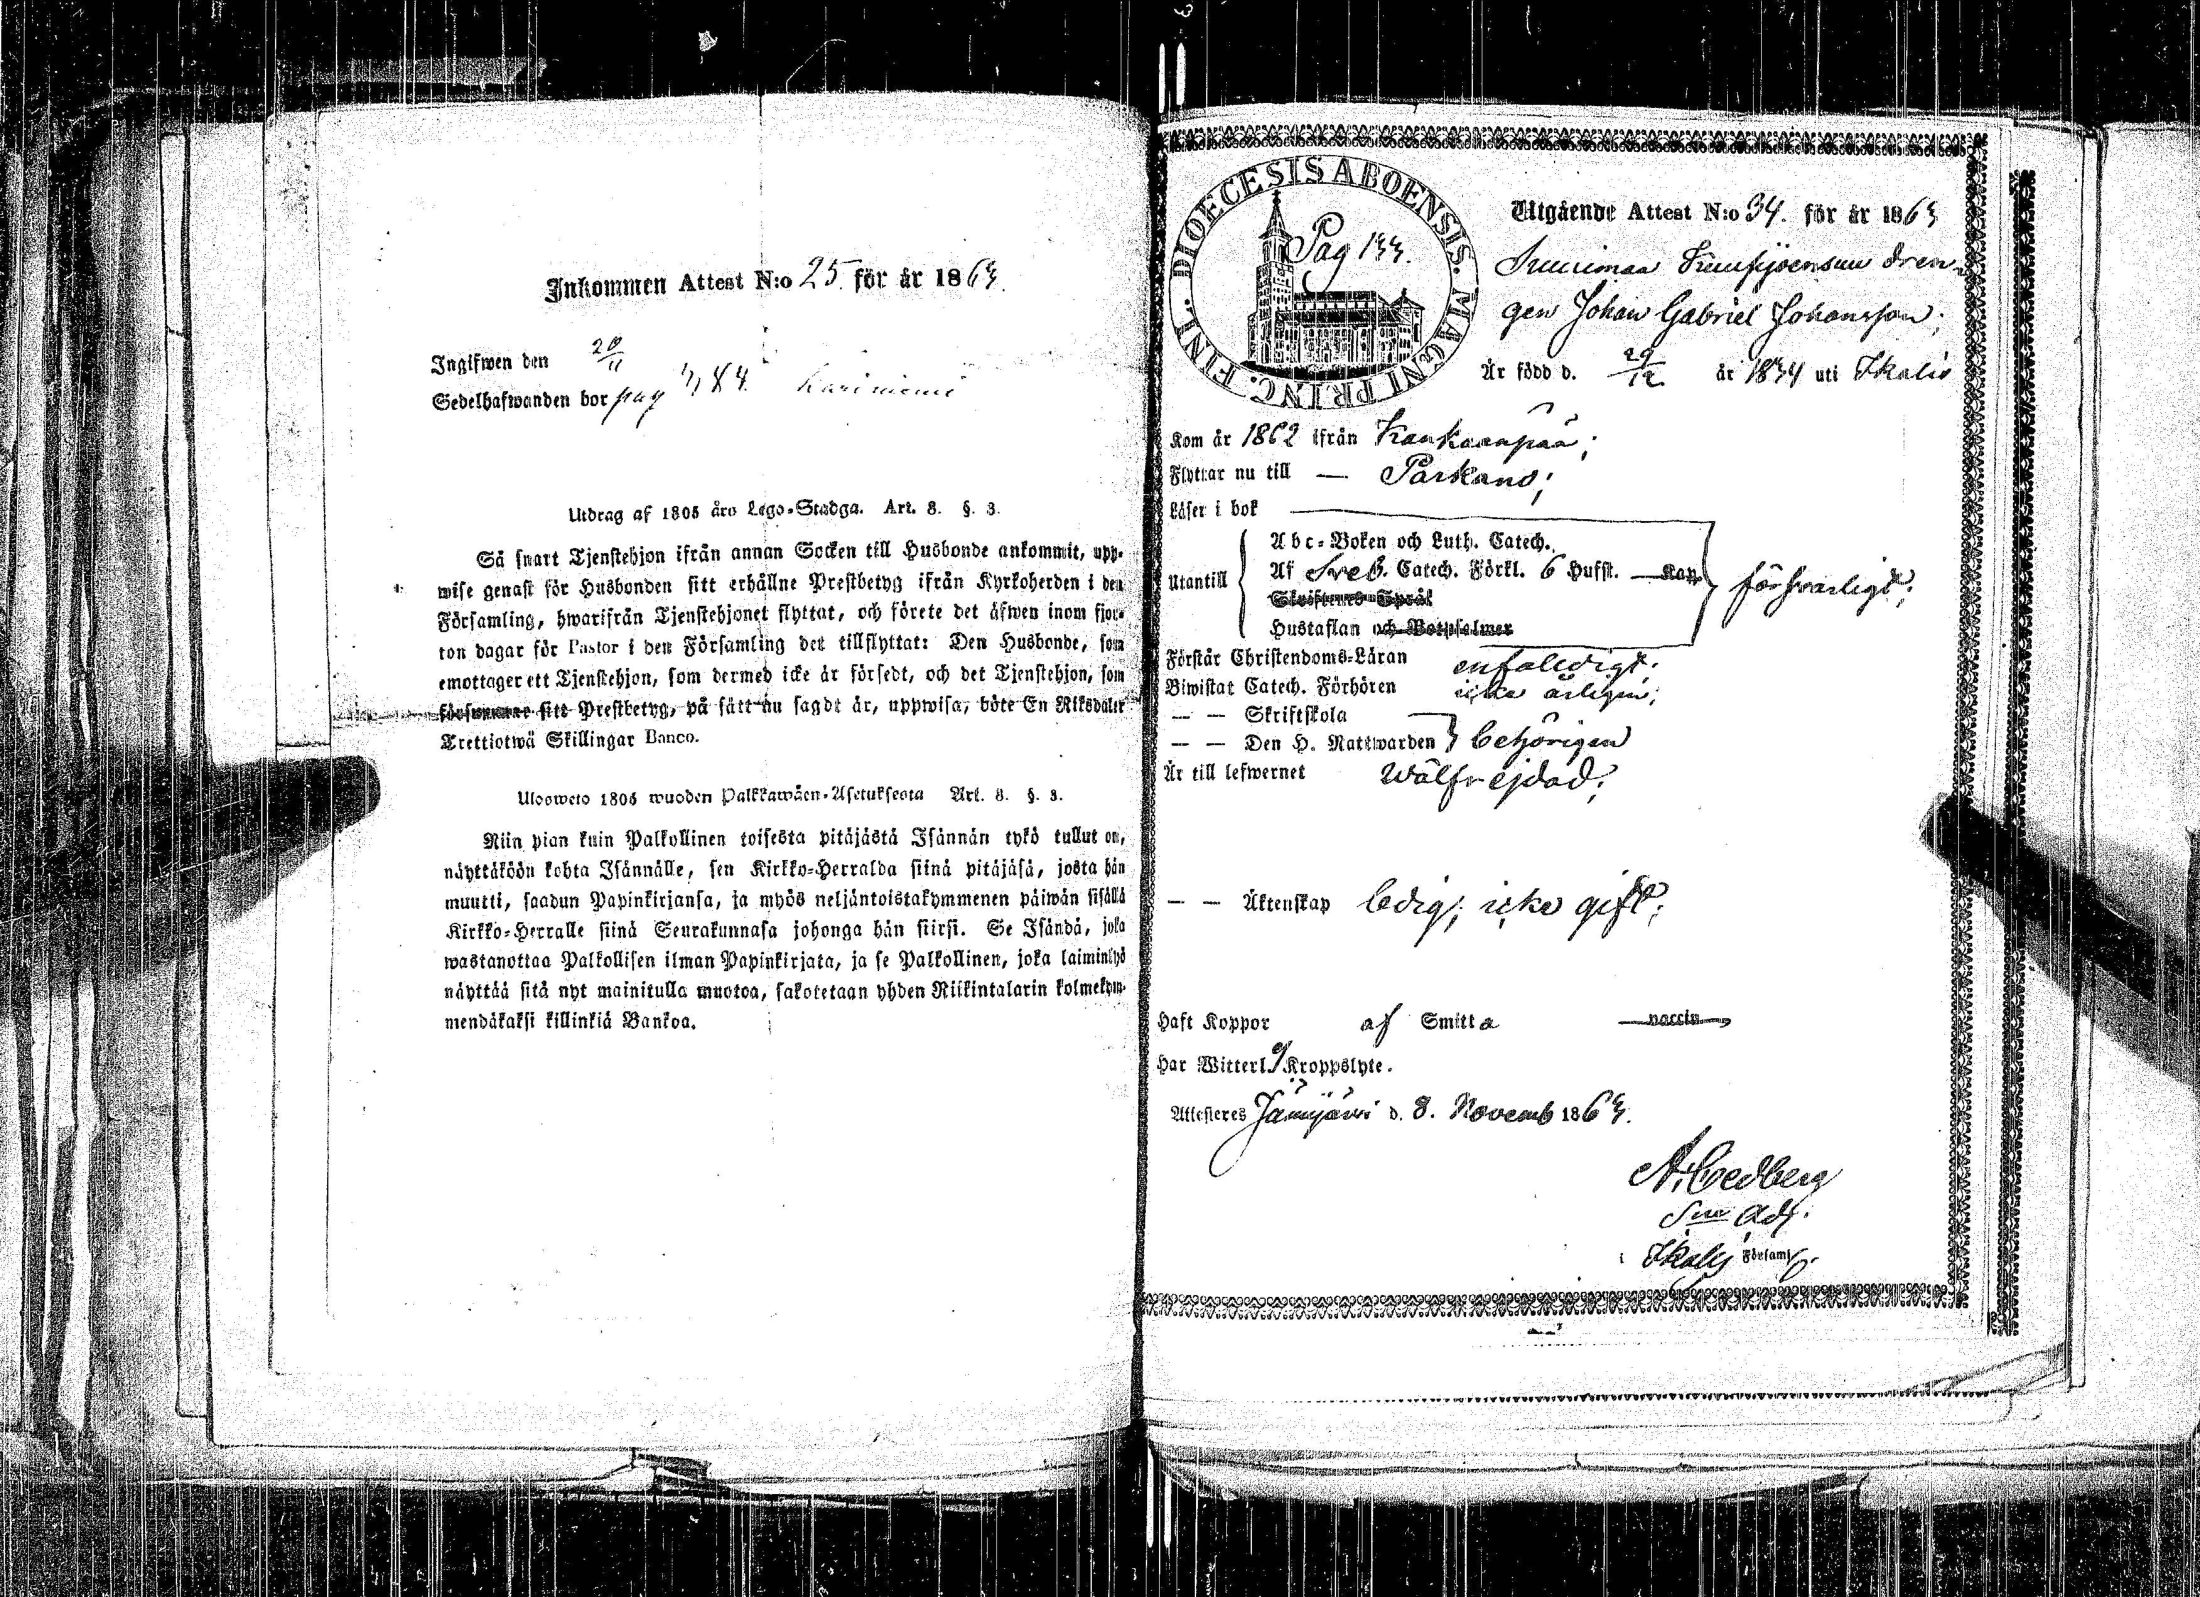 Inkommen Attest N:o 25. för år 1863.
Ingifwen den 20/11
Sedelhafwanden bor pag 184. Kariniemi
Utdrag af 1805 års Lego-Stadga. Art. 8. §. 3.
Så snart Tjenstehjon ifrån annan Socken till Husbonde ankommit, upp-
wise genast för Husbonden sitt erhållne Prestbetyg ifrån Kyrkoherden i den
Församling, hwarifrån Tjenstehjonet flyttat, och förete det äfwen inom fjor-
ton dagar för Pastor i den Församling det tillflyttat: Den Husbonde, som
emottager ett Tjenstehjon, som dermed icke är försedt, och det Tjenstehjon, som
försummar sitt Prestbetyg, på sätt nu sagdt är, uppwisa, böte En Riksdaler
Trettiotwå Skillingar Banco.
Ulosweto 1805 wuoden Palkkawäen-Asetuksesta Art. 8. §. 3.
Niin pian kuin Palkollinen toisesta pitäjästä Isännän tykö tullut on,
näyttäköön kohta Isännälle, sen Kirkko-Herralda siinä pitäjäsä, josta hän
muutti, saadun Papinkirjansa, ja myös neljäntoistakymmenen päiwän sisällä
Kirkko-Herralle siinä Seurakunnasa johonga hän siirsi. Se Isändä, joka
wastanottaa Palkollisen ilman Papinkirjata, ja se Palkollinen, joka laiminlyö
näyttää sitä nyt mainitulla muotoa, sakotetaan yhden Riikintalarin kolmekym-
mendäkaksi killinkiä Bankoa.
DIOECESIS ABOENSIS. MAGNI PRINC. FINL.
Pag 133.
Utgående Attest N:o 34. för år 1863
dren-
gen Johan Gabriel Johansson;
Är född d. 29/12 år 1834 uti Ikalis
Kom år 1862 ifrån Kankaanpää;
Flyttar nu till — Parkano;
Läser i bok
Utantill
Abc-Boken och Luth. Catech.
Af Sveb. Catech. Förkl. 6 Hufst. — Kap.
Skriftenes Språk
Hustaflan och Botpsalmer
försvarligt;
Förstår Christendoms-Läran enfaldigt;
Biwistat Catech. Förhören icke årligen;
— — Skriftskola
— — Den H. Nattwarden behörigen
Är till lefwernet wälfrejdad;
— — Äktenskap ledig; icke gift;
Haft Koppor af Smitta vaccin
Har Witterl. Kroppslyte.
Attesteres Jämijärvi d. 8. Novemb 1863.
A. Cedberg
Adj.
i Ikalis Församl.